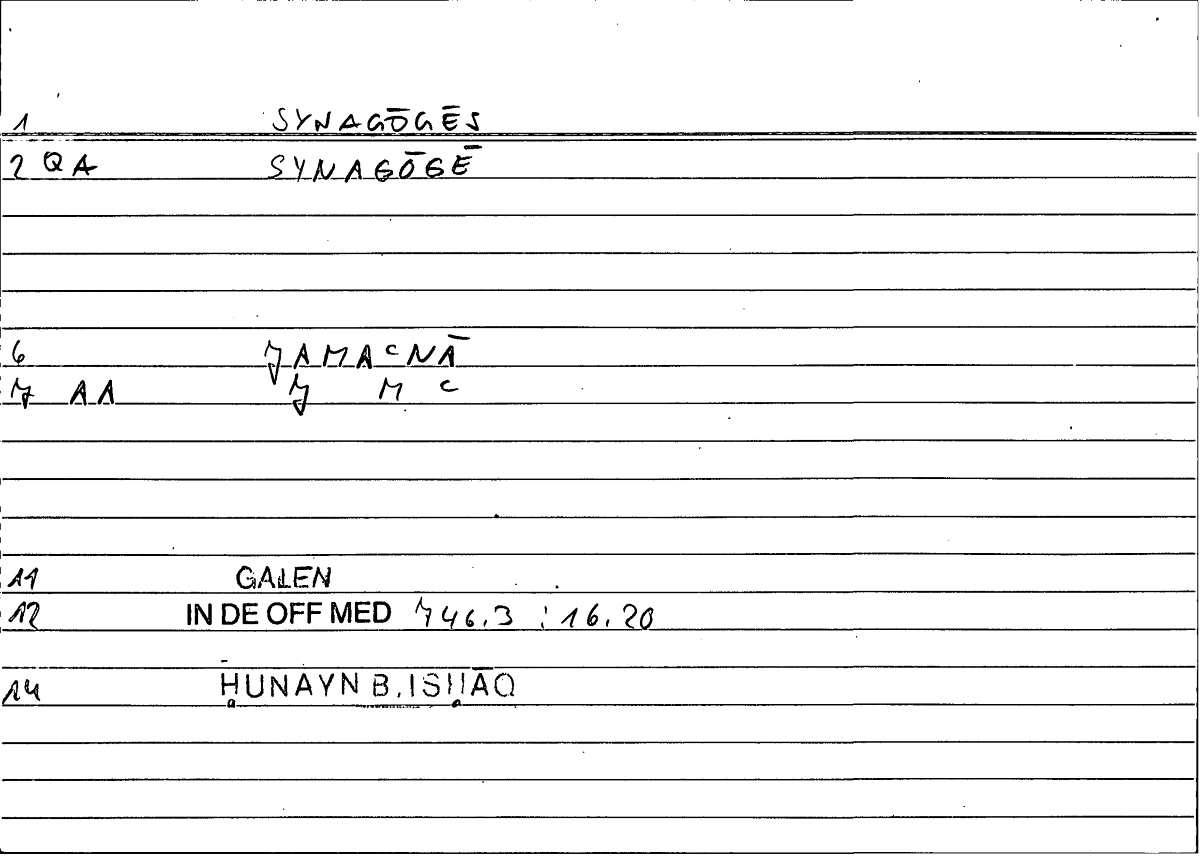 1 SYNAGŌGĒS
2 QA SYNAGŌGĒ
6 JAMAᶜNĀ
7 AA J M ᶜ
11 GALEN
12 IN DE OFF MED 746.3 : 16.20
14 ḤUNAYN B. ISḤĀQ